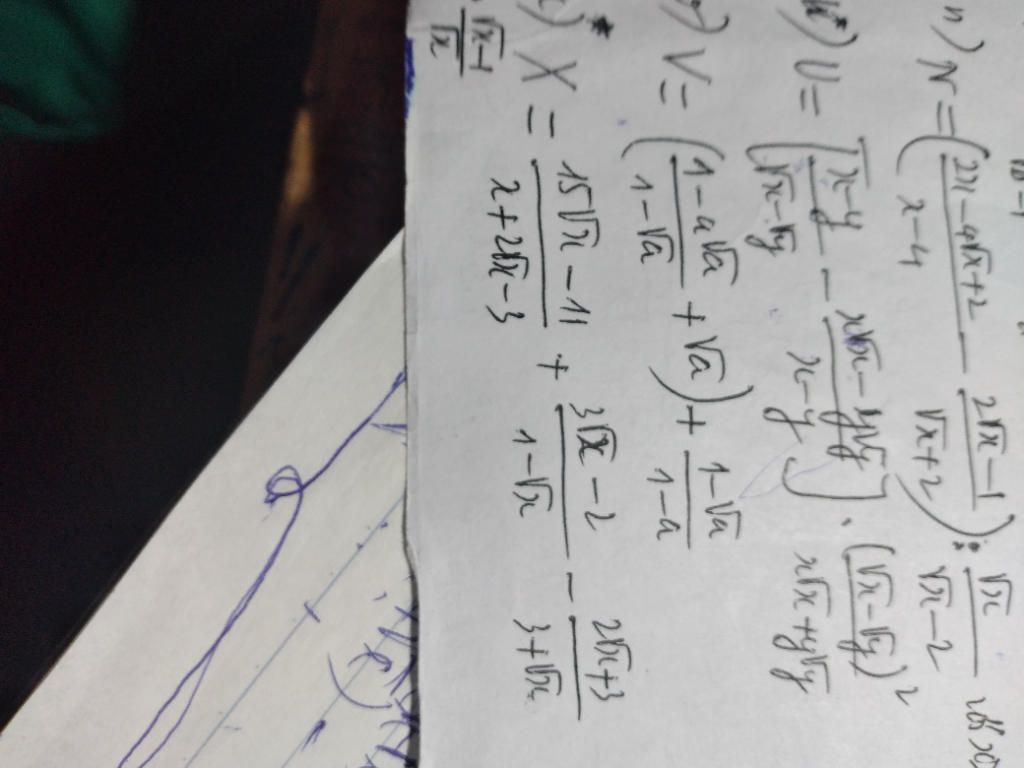 n) N = ( (2x - 4√x + 2)/(x - 4) - (2√x - 1)/(√x + 2) ) : √x/(√x - 2)
) U = [ (x - y)/(√x - √y) - (x√x - y√y)/(x - y) ] . (√x - √y)²/(x√x + y√y)
) V = ( (1 - a√a)/(1 - √a) + √a ) + (1 - √a)/(1 - a)
)* X = (15√x - 11)/(x + 2√x - 3) + (3√x - 2)/(1 - √x) - (2√x + 3)/(3 + √x)
(√x - 1)/√x